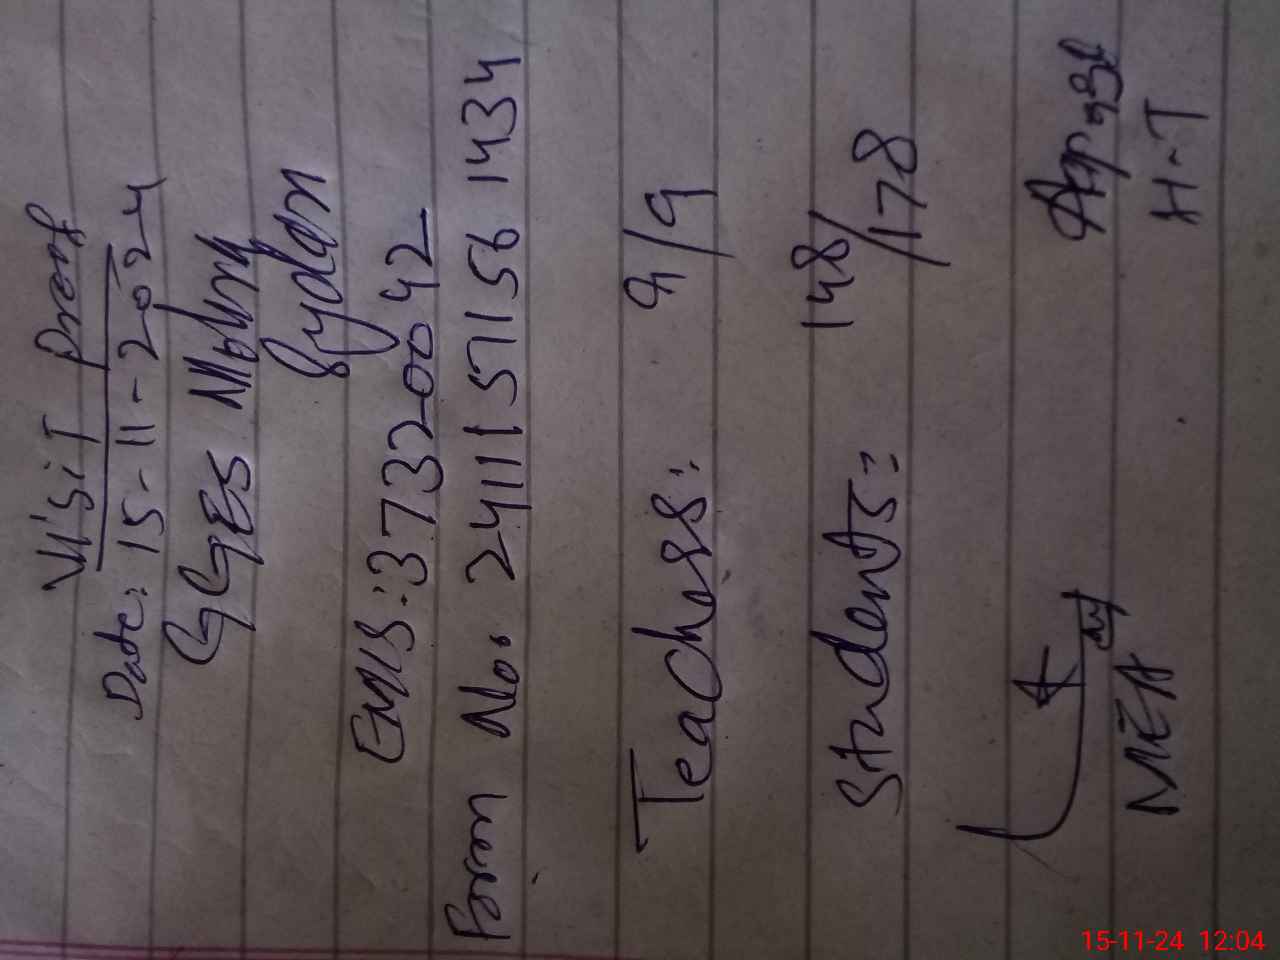 Visit Proof
Date: 15-11-2024
GGES Mohra
EMIS: 37320042
Form No. 24111571561434
Teachers: 9/9
Students: 148/178
MEA
H-T
15-11-24 12:04